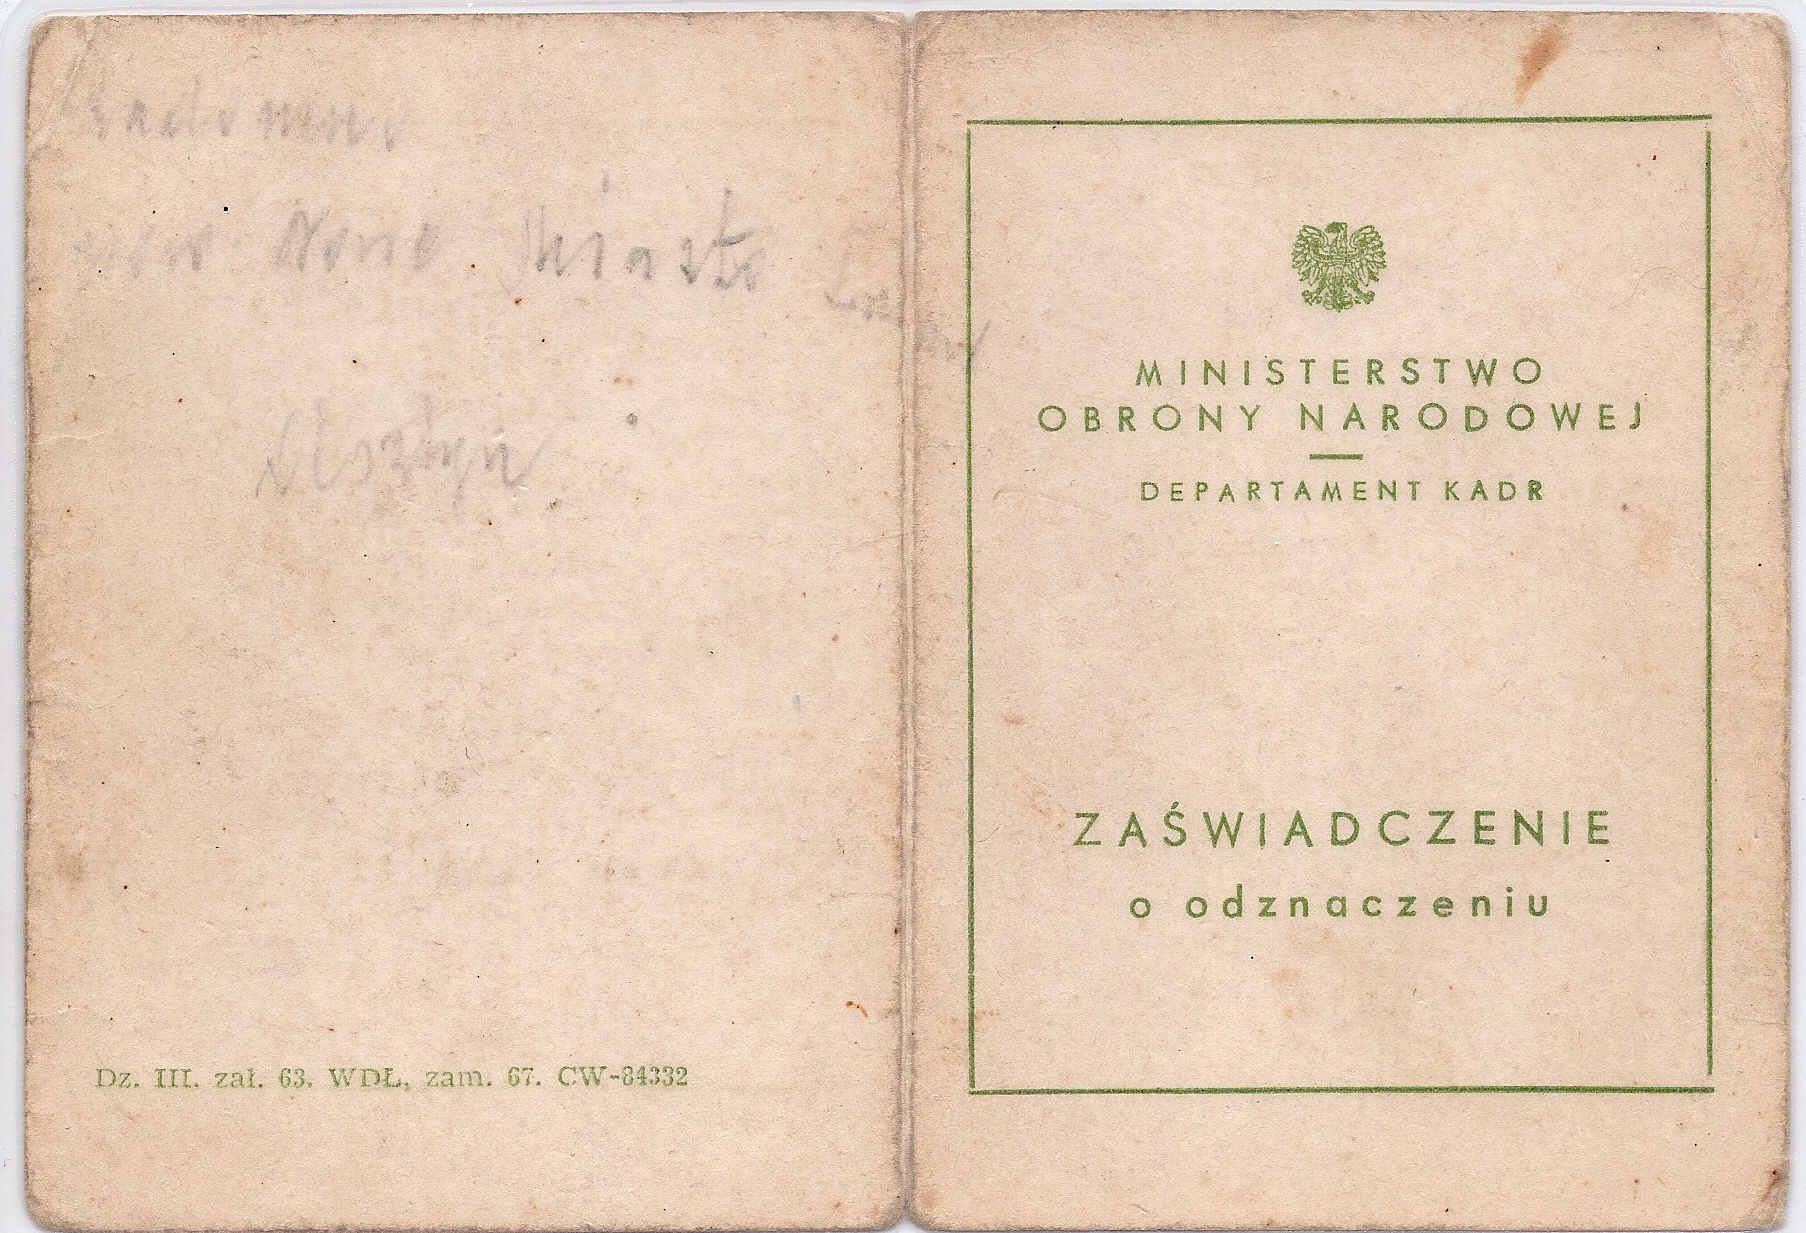 Nowe Miasto
Olsztyn
Dz. III. zał. 63. WDŁ, zam. 67. CW-84332
MINISTERSTWO
OBRONY NARODOWEJ
DEPARTAMENT KADR
ZAŚWIADCZENIE
o odznaczeniu